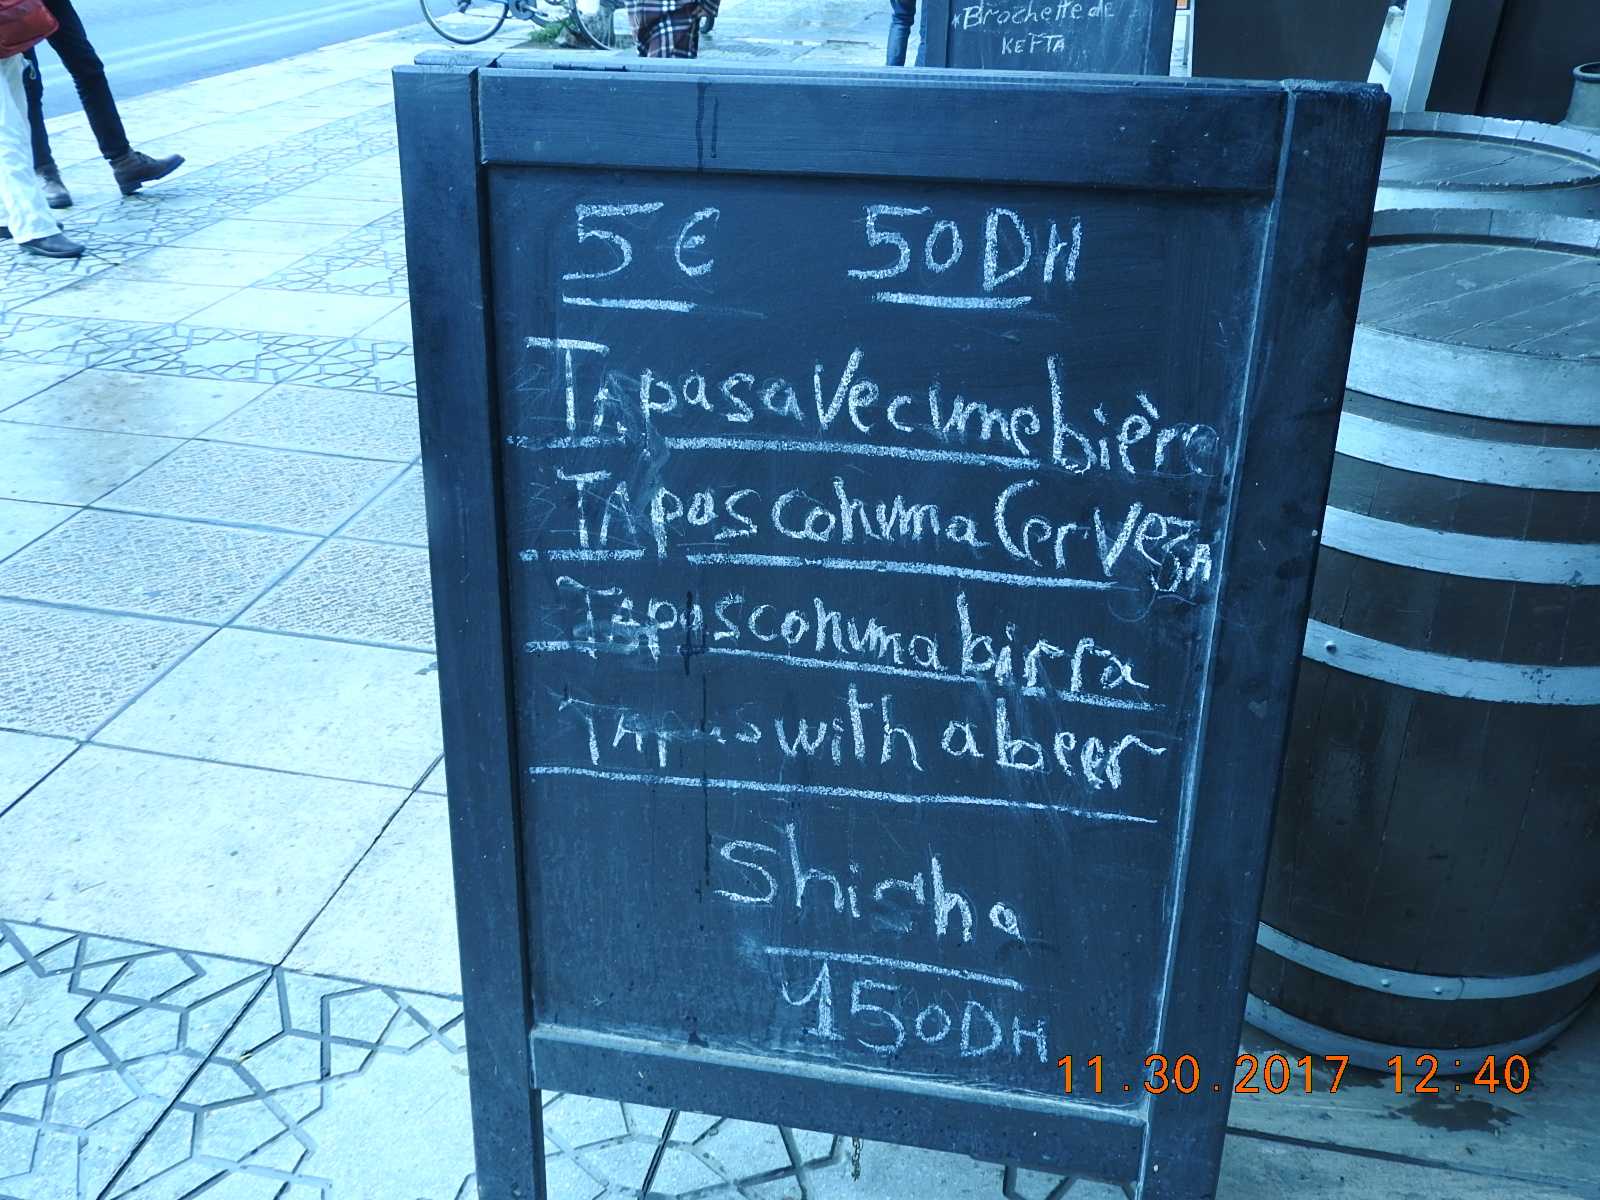 *Brochette de
KEFTA
5€ 50DH
TApas avec une bière
TApas con una CerVezA
TApas con una birra
TApas with a beer
Shisha
150DH
11.30.2017 12:40